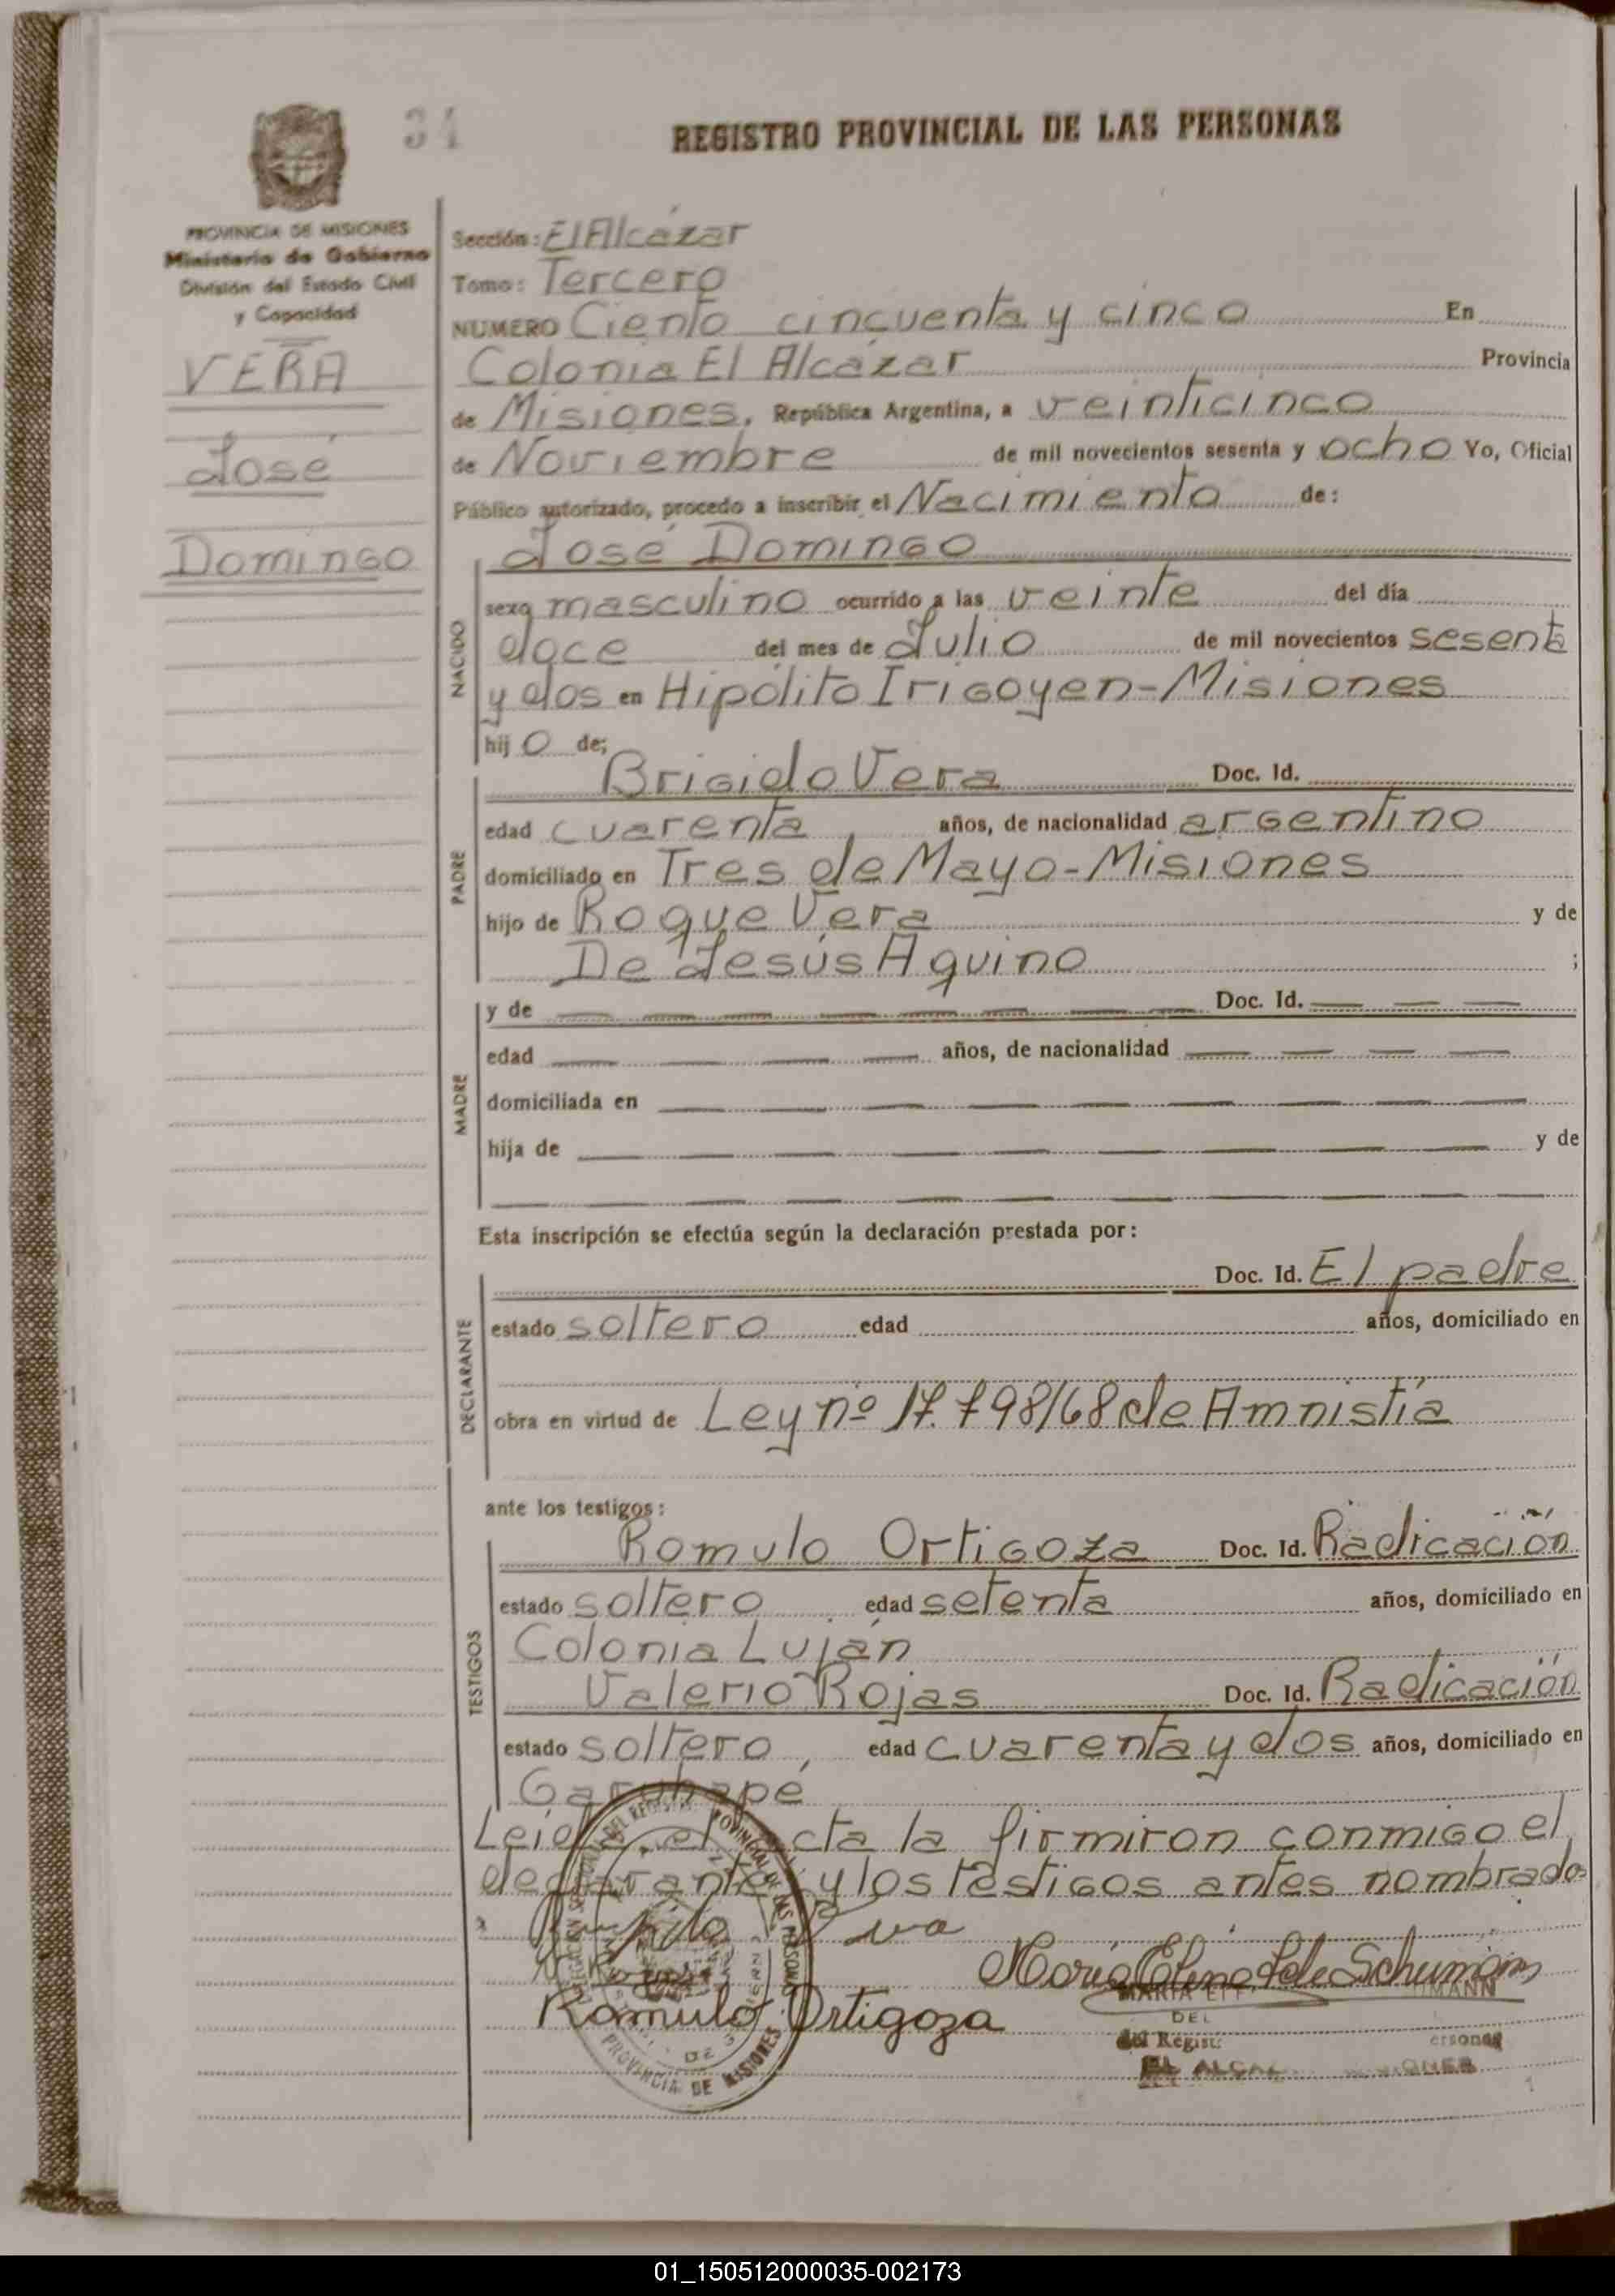 34
REGISTRO PROVINCIAL DE LAS PERSONAS
PROVINCIA DE MISIONES
Ministerio de Gobierno
División del Estado Civil
y Capacidad
VERA
José
Domingo
Sección: El Alcázar
Tomo: Tercero
NUMERO Ciento cincuenta y cinco En
Colonia El Alcázar Provincia
de Misiones, República Argentina, a veinticinco
de Noviembre de mil novecientos sesenta y ocho Yo, Oficial
Público autorizado, procedo a inscribir el Nacimiento de:
José Domingo
NACIDO
sexo masculino ocurrido a las veinte del día
doce del mes de Julio de mil novecientos sesenta
y dos en Hipólito Irigoyen-Misiones
hijo de;
Brigido Vera Doc. Id.
PADRE
edad cuarenta años, de nacionalidad argentino
domiciliado en Tres de Mayo-Misiones
hijo de Roque Vera y de
De Jesús Aquino ;
MADRE
y de Doc. Id.
edad años, de nacionalidad
domiciliada en
hija de y de
Esta inscripción se efectúa según la declaración prestada por:
DECLARANTE
Doc. Id. El padre
estado soltero edad años, domiciliado en
obra en virtud de Ley nº 17.798/68 de Amnistía
ante los testigos:
TESTIGOS
Romulo Ortigoza Doc. Id. Radicación
estado soltero edad setenta años, domiciliado en
Colonia Luján
Valerio Rojas Doc. Id. Radicación
estado soltero, edad cuarenta y dos años, domiciliado en
Garuhapé
Leida el acta la firmiron conmigo el
declarante y los testigos antes nombrados
Maria Elena de Schumann
Romulo Ortigoza
DEL
del Regist
PROVINCIA DE MISIONES
01_150512000035-002173